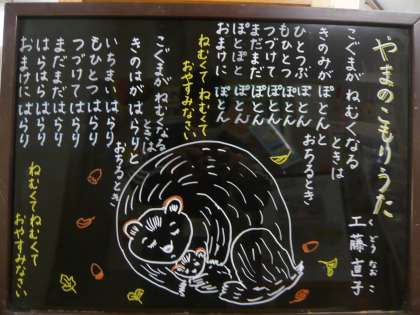 やまのこもりうた
工藤直子
くどうなおこ
こぐまが ねむくなる
ときは
きのみが ぽとんと
おちるとき
ひとつぶ ぽとん
もひとつ ぽとん
つづけて ぽとん
まだまだ ぽとん
ぽとぽと ぽとん
おまけに ぽとん
ねむくて ねむくて
おやすみなさい
こぐまが ねむくなる
ときは
きのはが はらりと
おちるとき
いちまい はらり
もひとつ はらり
つづけて はらり
まだまだ はらり
はらはら はらり
おまけに はらり
ねむくて ねむくて
おやすみなさい